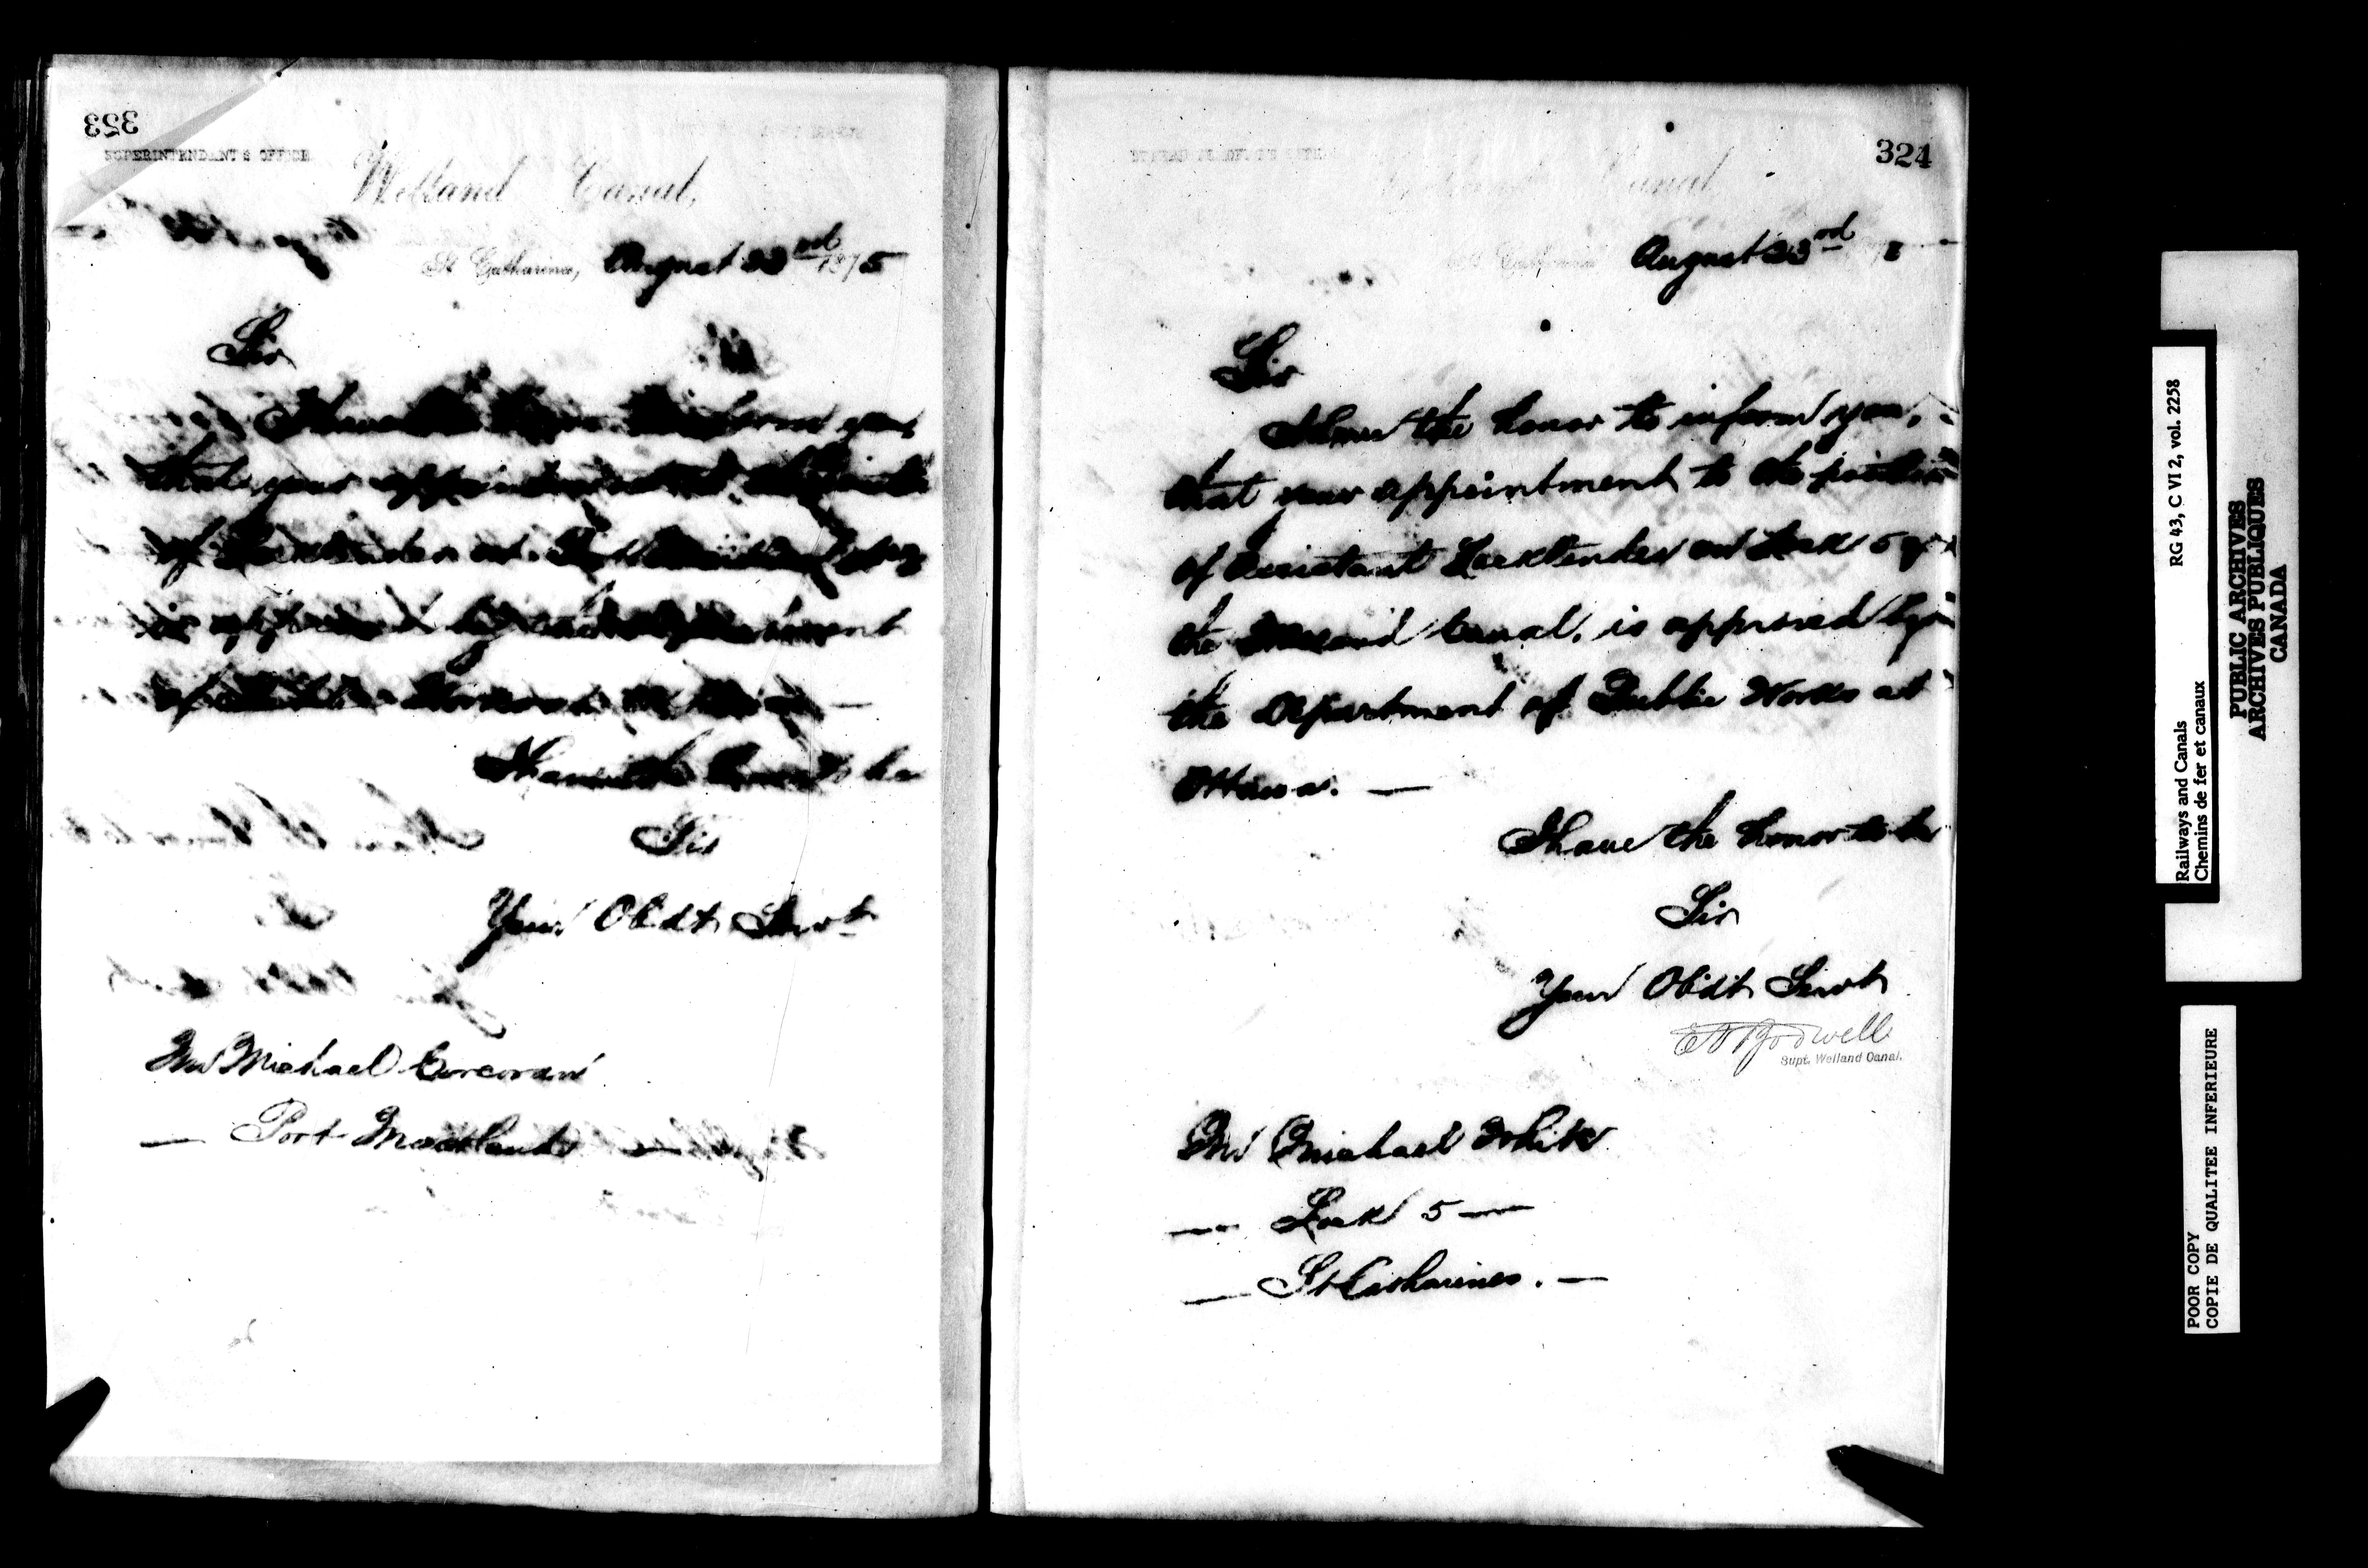 323
SUPERINTENDANT'S OFFICE
Welland Canal,
St Catharines, August 23rd 1875
Sir
I have the honor to inform you,
that your appointment to the
of Locktender at Port Maitland
is approved by the Department
of Public Works at Ottawa —
I have the honor to be
Sir
Your Obdt Servt
Mr Michael Corcoran
— Port Maitland —
324
Canal
August 23rd
Sir
I have the honor to inform you,
that your appointment to the position
of Assistant Locktender on Lock 5 of
the Welland Canal, is approved by
the Department of Public Works at
Ottawa. —
I have the honor to be
Sir
Your Obdt Servt
E D Bodwell
Supt. Welland Canal.
Mr Michael White
— Lock 5 —
— St Catharines. —
Railways and Canals RG 43, C VI 2, vol. 2258
Chemins de fer et canaux
PUBLIC ARCHIVES
ARCHIVES PUBLIQUES
CANADA
POOR COPY
COPIE DE QUALITEE INFERIEURE